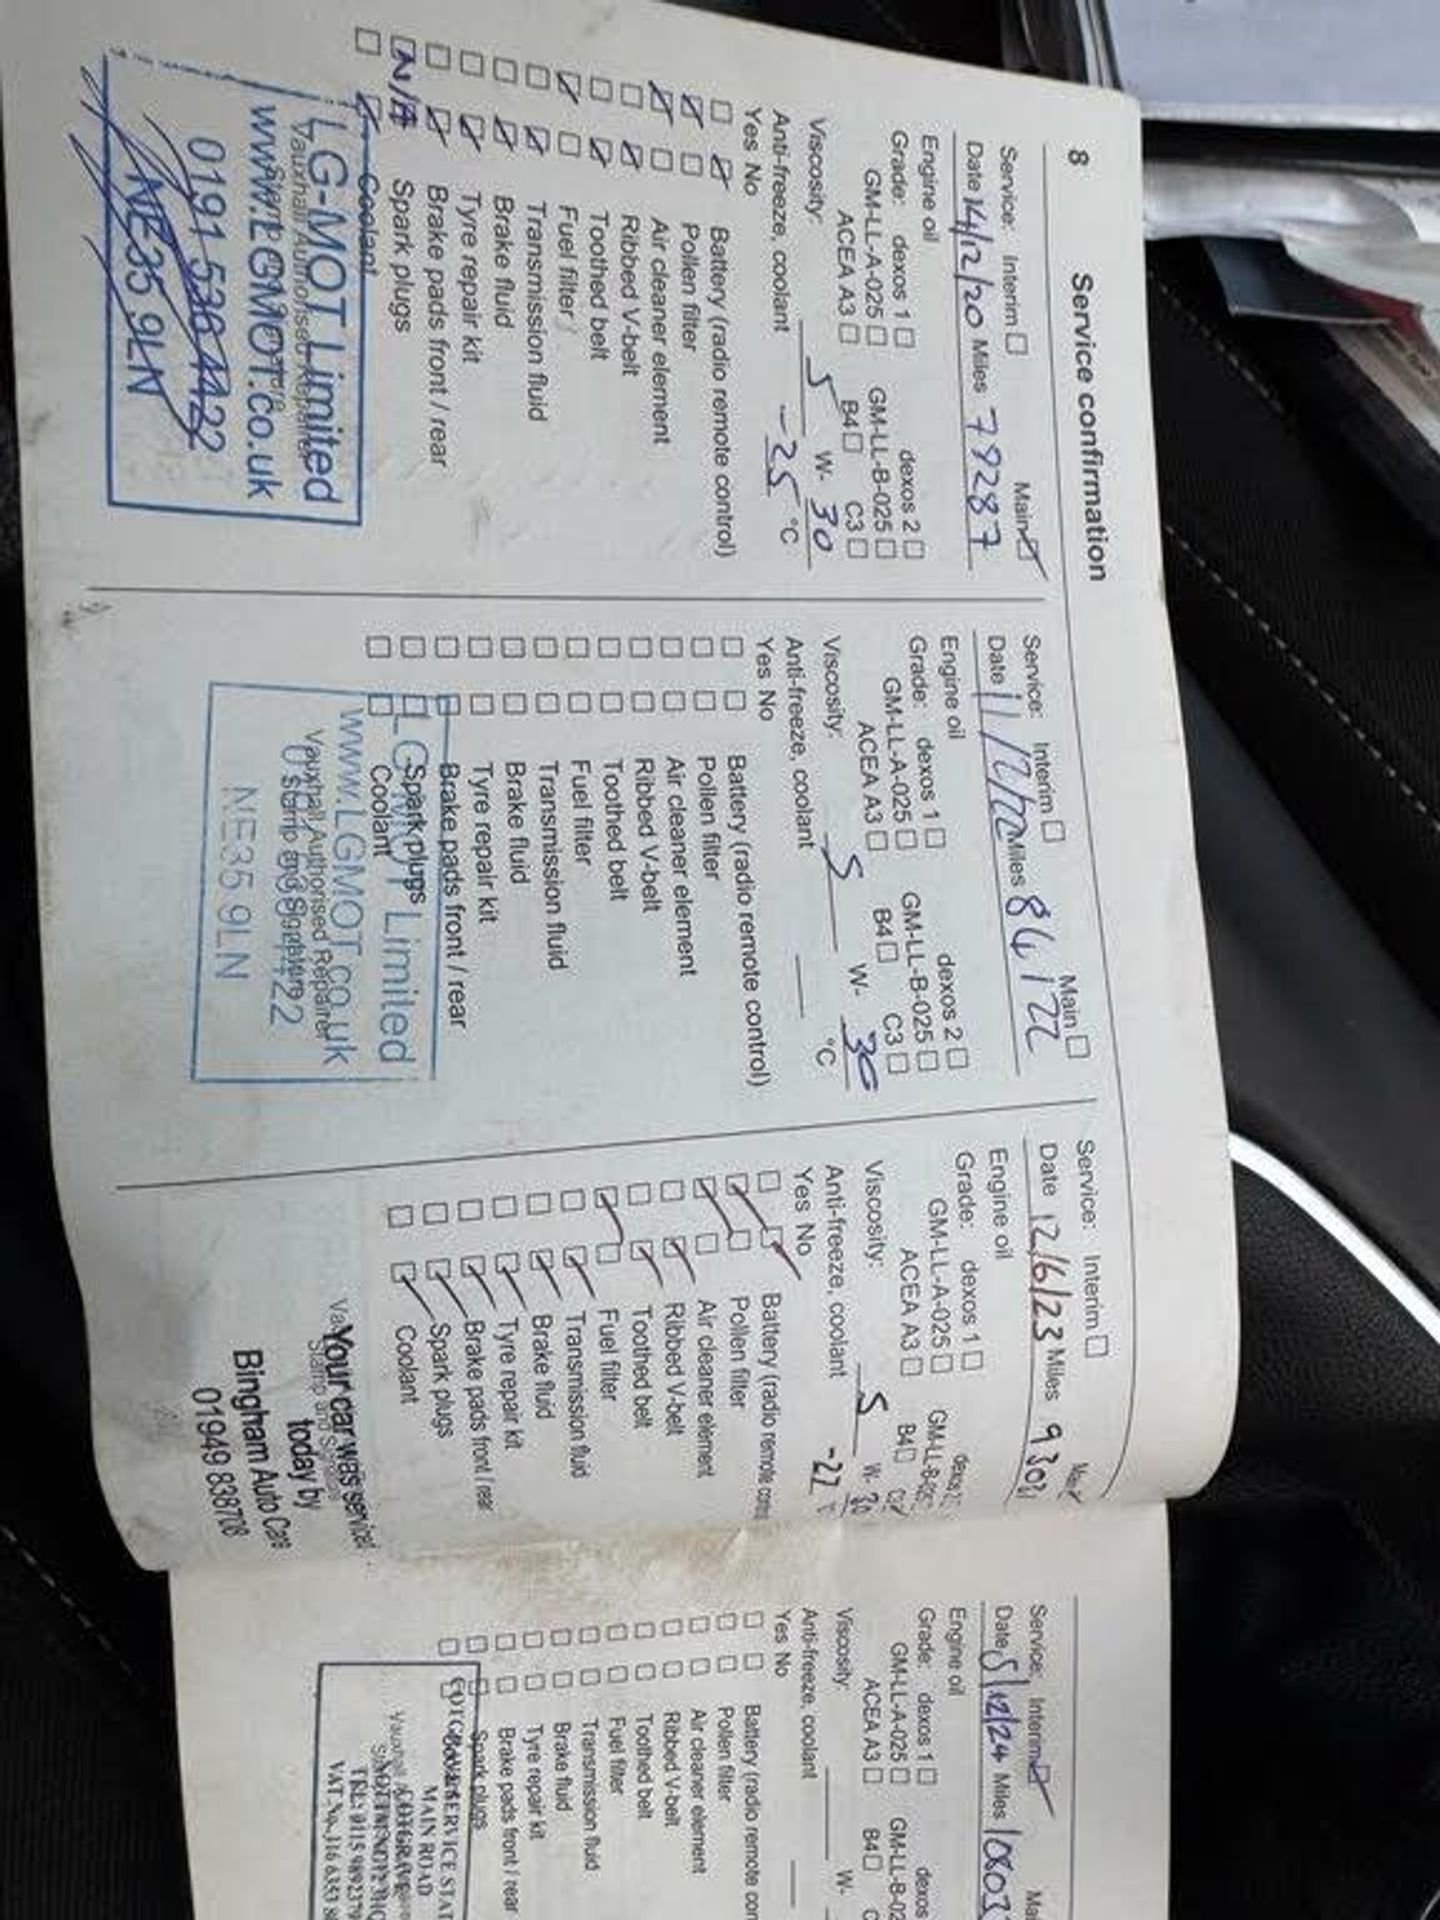 8 Service confirmation
Service: Interim ☐ Main ☑
Date 14/12/20 Miles 79287
Engine oil
Grade: dexos 1 ☐ dexos 2 ☐
GM-LL-A-025 ☐ GM-LL-B-025 ☐
ACEA A3 ☐ B4 ☐ C3 ☐
Viscosity: 5 W- 30
Anti-freeze, coolant -25 °C
Yes No
☐ ☑ Battery (radio remote control)
☑ ☐ Pollen filter
☑ ☐ Air cleaner element
☐ ☑ Ribbed V-belt
☐ ☑ Toothed belt
☑ ☐ Fuel filter
☐ ☑ Transmission fluid
☐ ☑ Brake fluid
☐ ☑ Tyre repair kit
☐ ☑ Brake pads front / rear
N/A Spark plugs
☐ ☑ Coolant
LG-MOT Limited
Vauxhall Authorised Repairer
www.LGMOT.co.uk
0191 536 4422
NE35 9LN
Service: Interim ☐ Main ☐
Date Miles 84122
Engine oil
Grade: dexos 1 ☐ dexos 2 ☐
GM-LL-A-025 ☐ GM-LL-B-025 ☐
ACEA A3 ☐ B4 ☐ C3 ☐
Viscosity: 5 W- 30
Anti-freeze, coolant °C
Yes No
☐ ☐ Battery (radio remote control)
☐ ☐ Pollen filter
☐ ☐ Air cleaner element
☐ ☐ Ribbed V-belt
☐ ☐ Toothed belt
☐ ☐ Fuel filter
☐ ☐ Transmission fluid
☐ ☐ Brake fluid
☐ ☐ Tyre repair kit
☐ ☐ Brake pads front / rear
☐ ☐ Spark plugs
☐ ☐ Coolant
Limited
www.LGMOT.co.uk
Vauxhall Authorised Repairer
Stamp and Signature
NE35 9LN
Service: Interim ☐
Date 12/6/23 Miles
Engine oil
Grade: dexos 1 ☐
GM-LL-A-025 ☐
ACEA A3 ☐ B4 ☐
Viscosity: 5 W- 30
Anti-freeze, coolant -22
Yes No
☐ ☑ Battery (radio remote
☑ ☐ Pollen filter
☑ ☐ Air cleaner element
☐ ☑ Ribbed V-belt
☐ ☑ Toothed belt
☑ ☐ Fuel filter
☐ ☑ Transmission fluid
☐ ☑ Brake fluid
☐ ☑ Tyre repair kit
☐ ☑ Brake pads front / rear
☐ ☑ Spark plugs
☐ ☑ Coolant
Your car was serviced
Stamp and
today by
Bingham Auto Care
01949 838708
Service: Interim ☑
Date 5/12/24 Miles
Engine oil
Grade: dexos 1 ☐ dexos
GM-LL-A-025 ☐ GM-LL-B-02
ACEA A3 ☐ B4 ☐
Viscosity: W-
Anti-freeze, coolant
Yes No
☐ ☐ Battery (radio remote con
☐ ☐ Pollen filter
☐ ☐ Air cleaner element
☐ ☐ Ribbed V-belt
☐ ☐ Toothed belt
☐ ☐ Fuel filter
☐ ☐ Transmission fluid
☐ ☐ Brake fluid
☐ ☐ Tyre repair kit
☐ ☐ Brake pads front / rear
☐ ☐ Spark plugs
SERVICE STAT
MAIN ROAD
COTGRAVE
TEL: 0115 9892379